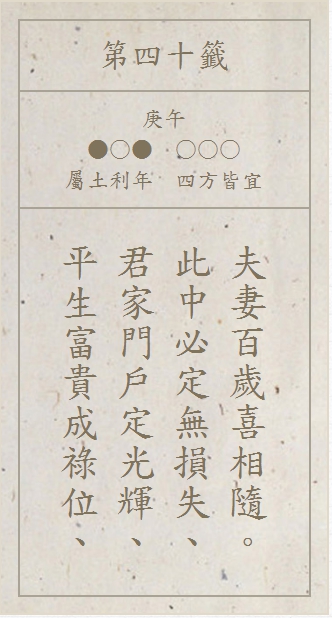 第四十籤
庚午
●○● ○○○
屬土利年 四方皆宜
平生富貴成祿位、
君家門戶定光輝、
此中必定無損失、
夫妻百歲喜相隨。